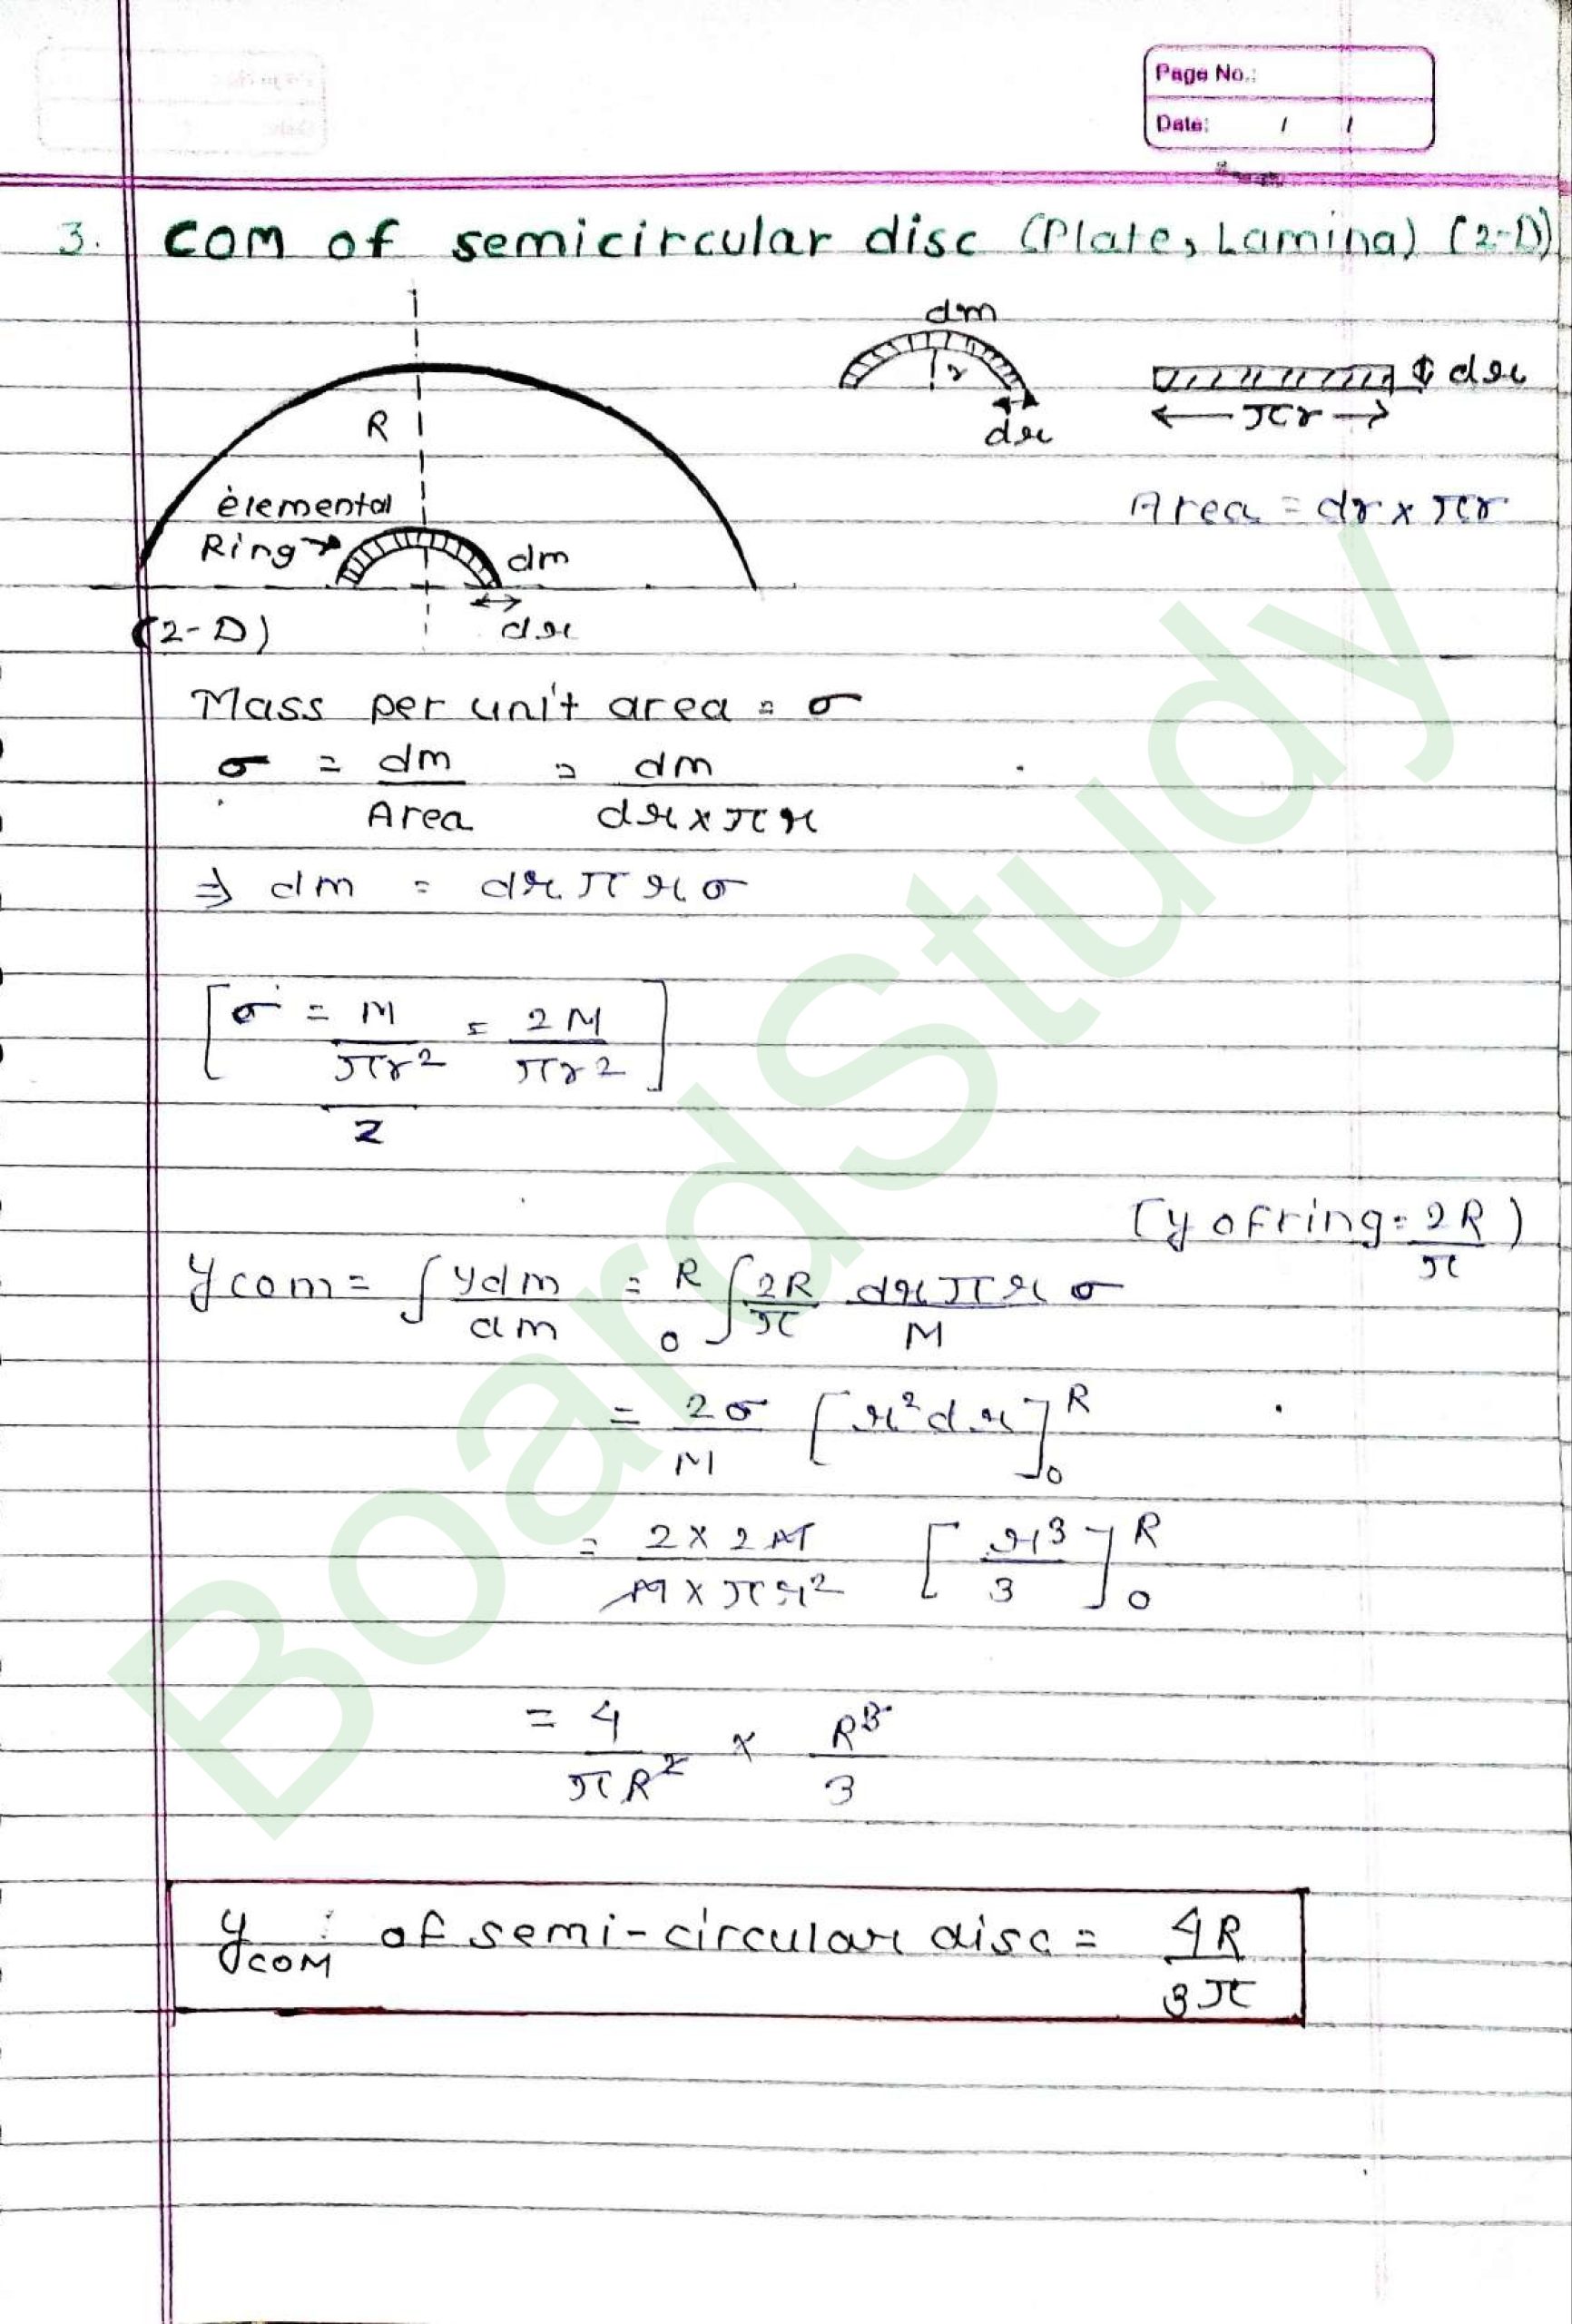 Page No.:
Date: / /
3. COM of semicircular disc (Plate, Lamina) (2-D)
dm
r
dr
πr
dr
Area = dr x πr
R
elemental
Ring
dm
dr
(2-D)
Mass per unit area = σ
σ = dm/Area = dm/dr x πr
⇒ dm = dr π r σ
[σ = M/πr²/2 = 2M/πr²]
(y of ring = 2R/π)
y com = ∫ ydm/dm = R ∫ 0 2R/π dr π r σ/M
= 2σ/M [r² dr] R 0
= 2 x 2M/M x πr² [r³/3] R 0
= 4/πR² x R³/3
yCOM of semi-circular disc = 4R/3π
BoardStudy